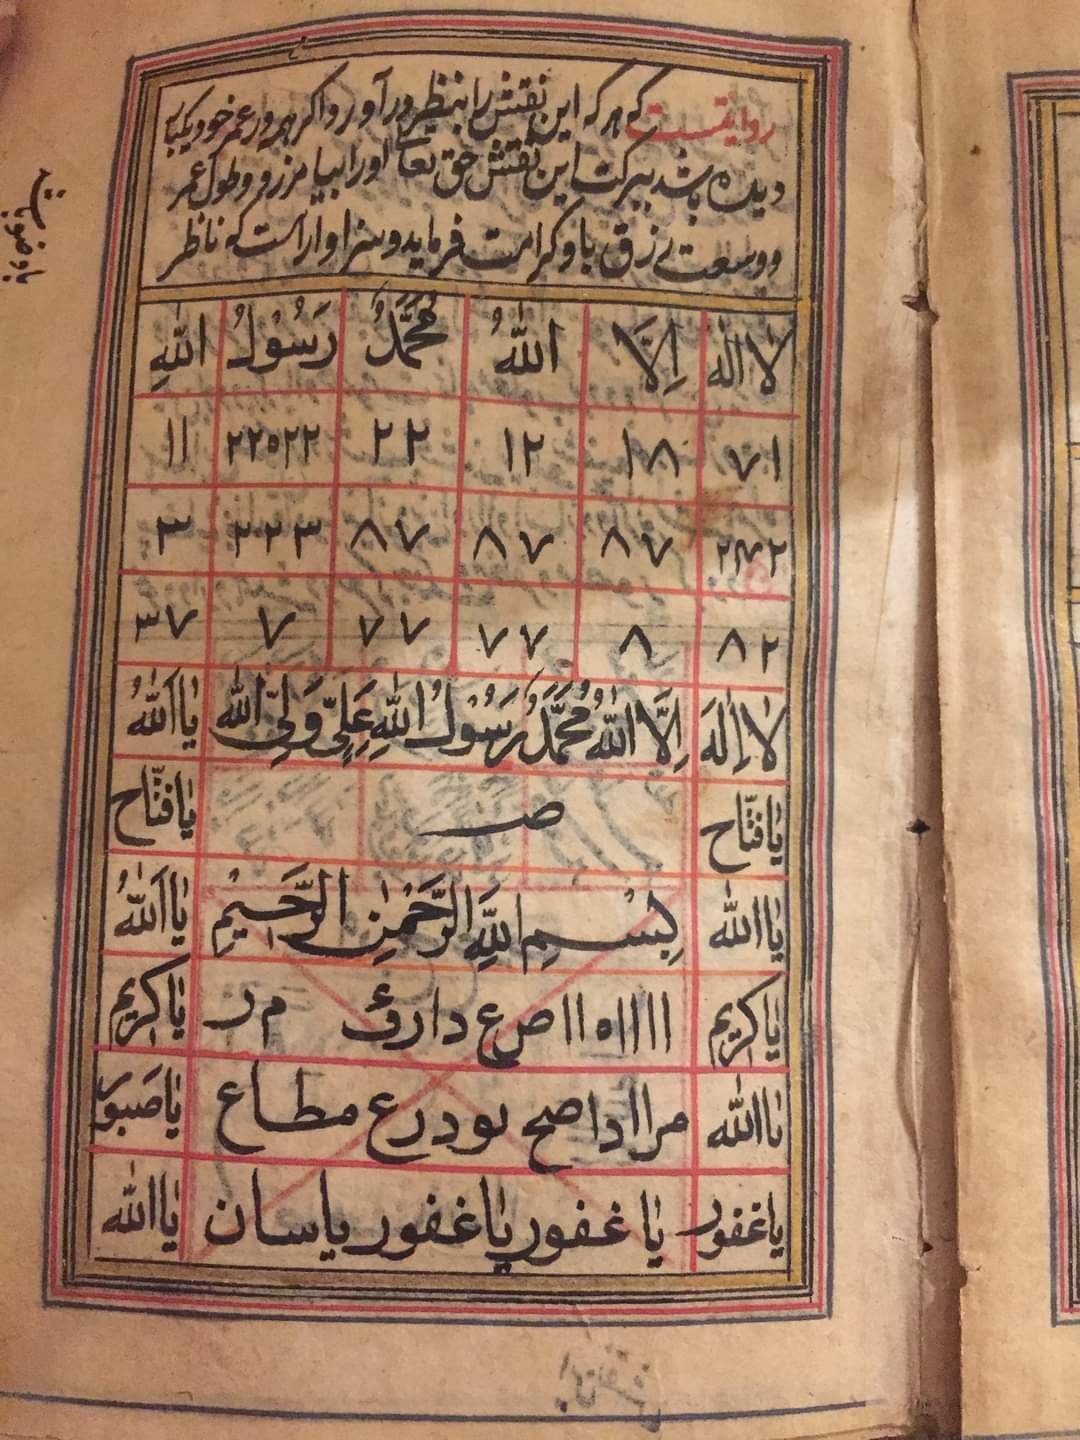 روایتست که هر که این نقش را بنظر در آورد و اگر هر روز عمر خود یکبار
دیده باشد ببرکت این نقش حق تعالی او را بیامرزد و طول عمر
و وسعت رزق با و کرامت فرماید و سزاوار است که ناظر
لا اله الا الله محمد رسول الله
۷۱ ۱۸ ۱۲ ۲۲ ۲۲۵۲۲ ۱۱
۸۷ ۸۷ ۸۷ ۲۲۳ ۳
۸۲ ۸ ۷۷ ۷۷ ۷ ۳۷
لا اِلهَ اِلَّا اللهُ مُحَمَّدٌ رَسُولُ اللهِ عَلِیٌّ وَلِیُّ الله یا اَللهُ
یا فتّاح ص یا فتّاح
یا الله بِسْمِ اللهِ الرَّحْمٰنِ الرَّحیمِ یا اَللهُ
یا کریم ۱۱۱۱۵۱۱ ص ع د ا ر ق م ر یا کریم
یا الله مطاع یا صبور
یا غفور یا غفور یا غفور یاسان یا الله